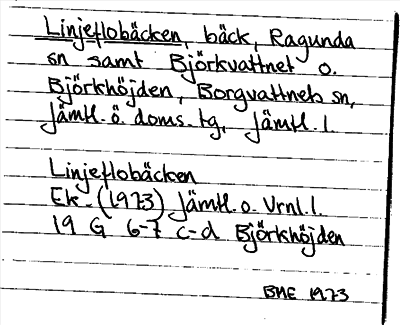 Linjeflobäcken, bäck, Ragunda
sn samt Björkvattnet o.
Björkhöjden, Borgvattnets sn,
Jämtl. ö. doms. tg, Jämtl. l.
Linjeflobäcken
Ek. (1973) Jämtl. o. Vrnl. l.
19 G 6-7 c-d Björkhöjden
BME 1973